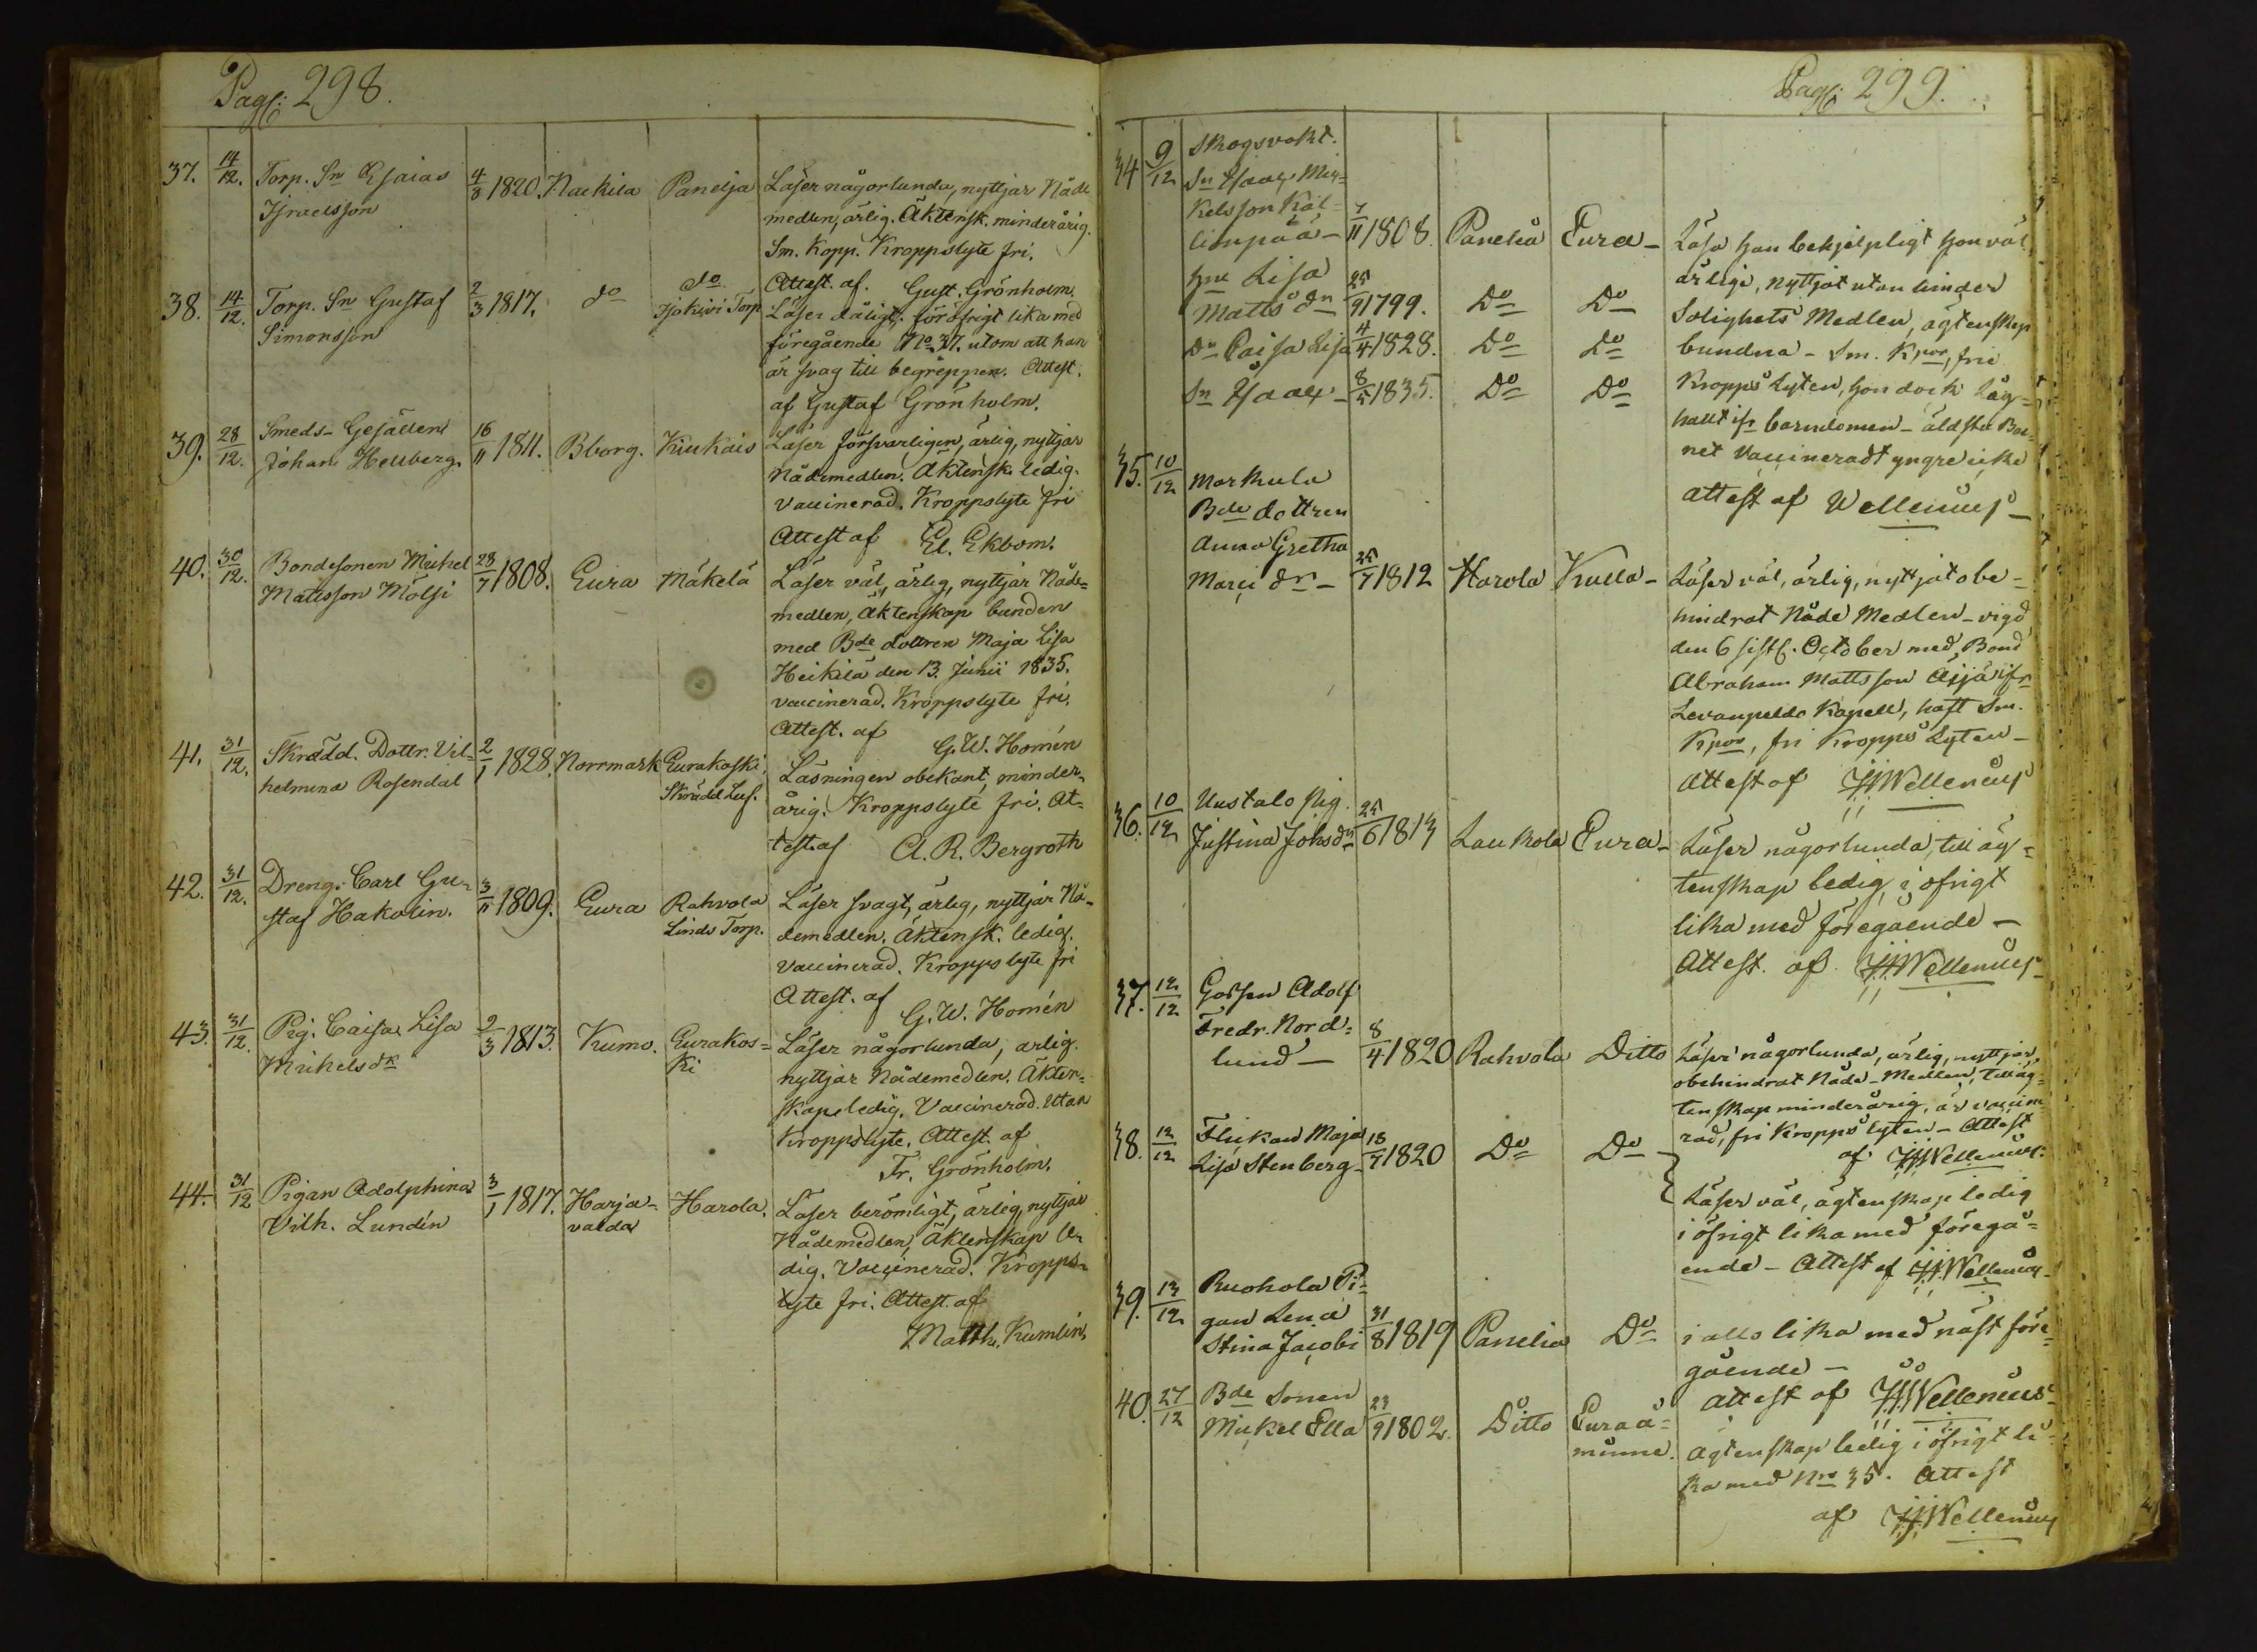 Pag: 298.
37. 14/12. Torp. Sn Esaias 4/3 1820. Nackila Panelja Läser någorlunda, nyttjar Nåde
Israelsson medlen, ärlig. Äktensk. minderårig.
Sm. Kopp. Kroppslyte fri.
Attest. af. Gust. Grönholm.
38. 14/12. Torp. Sn Gustaf 2/3 1817. do do Läser dåligt; föröfrigt lika med
Simonsson Isokivi Torp föregående No 37. utom att han
är svag till begreppen. Attest.
af Gustaf Grönholm.
39. 28/12. Smeds-Gesällen 16/11 1811. Bborg. Kiukais Läser försvarligen, ärlig, nyttjar
Johan Hellberg. Nådemedlen. Äktensk. ledig.
Vaccinerad. Kroppslyte fri
Attest af El. Ekbom.
40. 30/12. Bondesonen Michel 28/7 1808. Eura Mäkelä Läser väl, ärlig, nyttjar Nåde=
Mattsson Mölsi medlen, Äktenskap bunden
med Bde dottren Maja Lisa
Heikilä den 13. Junii 1835.
vaccinerad. Kroppslyte fri.
Attest. af G. W. Homén
41. 31/12. Skrädd. Dottr. Vil= 2/1 1828. Norrmark Eurakoski, Läsningen obekant, minder,
helmina Rosendal Skrädd. årig. Kroppslyte fri. At=
test af A. R. Bergroth
42. 31/12. Dreng. Carl Gu= 3/11 1809. Eura Rahvola Läser svagt, ärlig, nyttjar Nå=
staf Hakolin. Linds Torp. demedlen. Äktensk. ledig.
Vaccinerad. Kroppslyte fri
Attest. af G. W. Homén
43. 31/12. Pig. Caisa Lisa 2/3 1813. Kumo. Eurakos= Läser någorlunda, ärlig.
Michelsdr ki nyttjar Nådemedlen. Äkten=
skap ledig. Vaccinerad. Utan
Kroppslyte. Attest. af
Fr. Grönholm.
44. 31/12 Pigan Adolphina 3/1 1817. Harja= Harola. Läser berömligt, ärlig, nyttjar
Vilh. Lundén valda Nådemedlen, Äktenskap le=
dig. Vaccinerad. Kropps=
lyte fri. Attest. af
Matth. Kumlin.
Pag: 299.
34 9/12 Skogsvakt.
Sn Isaac Mic=
kelsson Käl=
limpää- 7/11 1808. Panelia Eura- Läsa han behjelpligt hon väl
ärlige, nyttjat utan hinder
hu Lisa
Mattsdr 25/9 1799. Do Do Salighets Medlen, ägtenskap
Dr Caisa Lisa 4/4 1828. Do Do bundna - Sm. Kpor, frie
Sn Isaac - 8/5 1835. Do Do Kropps Lyten, hon dock låg=
halt ifr barndomen - äldsta Bar=
net Vaccineradt yngre icke
attest af Wellenius
35. 10/12 Markula
Bde dottren
Anna Gretha
Marci dr - 25/7 1812 Harola Kulla- Läser väl, ärlig, nyttjat obe=
hindrat Nåde Medlen - vigd
den 6 sistl. October med Bond
Abraham Mattsson Äijä ifr
Levanpeldo Kapell, haft Sm.
Kpor, fri Kropps Lyten -
Attest af JJWellenius
36. 10/12 Uustalo Pig.
Justina Johsdr 25/6 1813 Laukola Eura- Läser någorlunda, till äg=
tenskap ledig i öfrigt
lika med föregående -
Attest. af JJWellenius
37. 12/12 Gossen Adolf
Fredr. Nord=
lund - 8/4 1820 Rahvola Ditto Läser någorlunda, ärlig, nyttjar
obehindrat Nåde-Medlen, till äg=
tenskap minderårig, är vaccine
rad, fri Kropps lyten - Attest
af JJWellenius
38. 12/12 Flickan Maja
Lisa Stenberg 18/7 1820 Do Do Läser väl, ägtenskap ledig
i öfrigt lika med föregå=
ende - Attest af JJWellenius
39. 13/12 Ruohola Pi=
gan Lena
Stina Jacobs 31/8 1819 Panelia Do i allo lika med näst före=
gående -
attest af JJWellenius
40. 27/12 Bde Sonen
Mickel Ella 23/9 1802. Ditto Euraå=
minne. ägtenskap ledig i öfrigt li=
ka med Nro 35. Attest
af JJWellenius